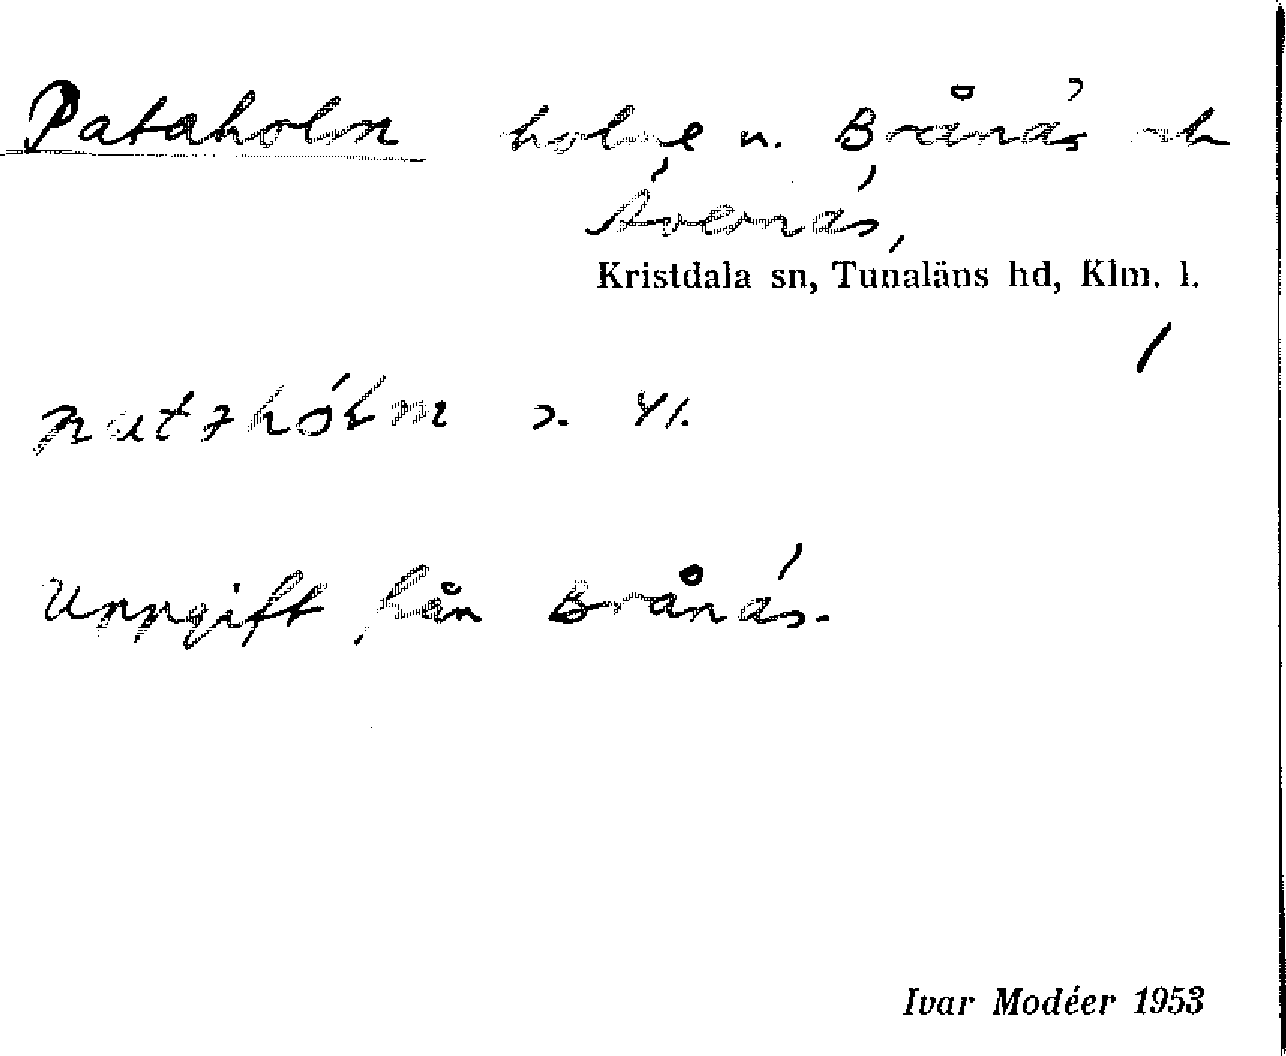 Pataholm holme n. Brånäs och
Ävenäs,
Kristdala sn, Tunaläns hd, Klm. l.
Uppgift från Brånäs.
Ivar Modéer 1953